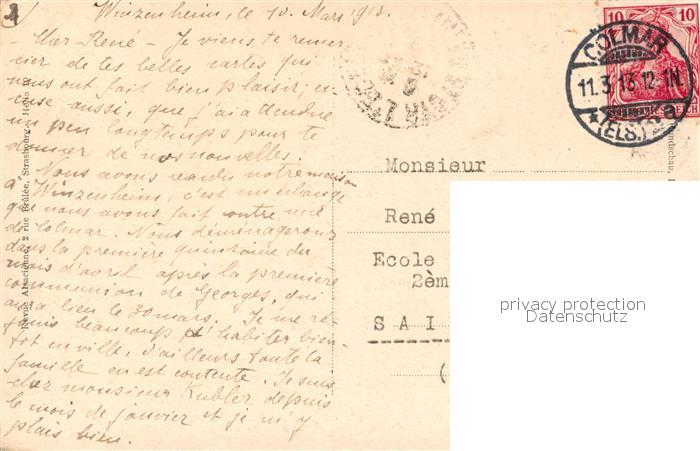 Winzenheim, le 10 Mars 1913.
Cher René – Je viens te remer-
cier de tes belles cartes qui
nous ont fait bien plaisir; ex-
cuse aussi, que j'ai attendu
un peu longtemps pour te
donner de nos nouvelles.
Nous avons vendu notre maison
à Winzenheim, c'est un échange
que nous avons fait contre une
de Colmar. Nous déménagerons
dans la première quinzaine du
mois d'avril après la première
communion de Georges, qui
aura lieu le 30 mars. Je me ré-
jouis beaucoup d'habiter bien-
tot en ville, d'ailleurs toute la
famille en est contente. Je suis
chez monsieur Kubler depuis
le mois de janvier et je m'y
plais bien.
Revue Alsacienne, 2 rue Brûlée, Strasbourg
10
10
COLMAR
11.3.13.12-1N.
* (ELS.) 2a
REICH
Monsieur
René
Ecole
2èm
SAI
(
privacy protection
Datenschutz